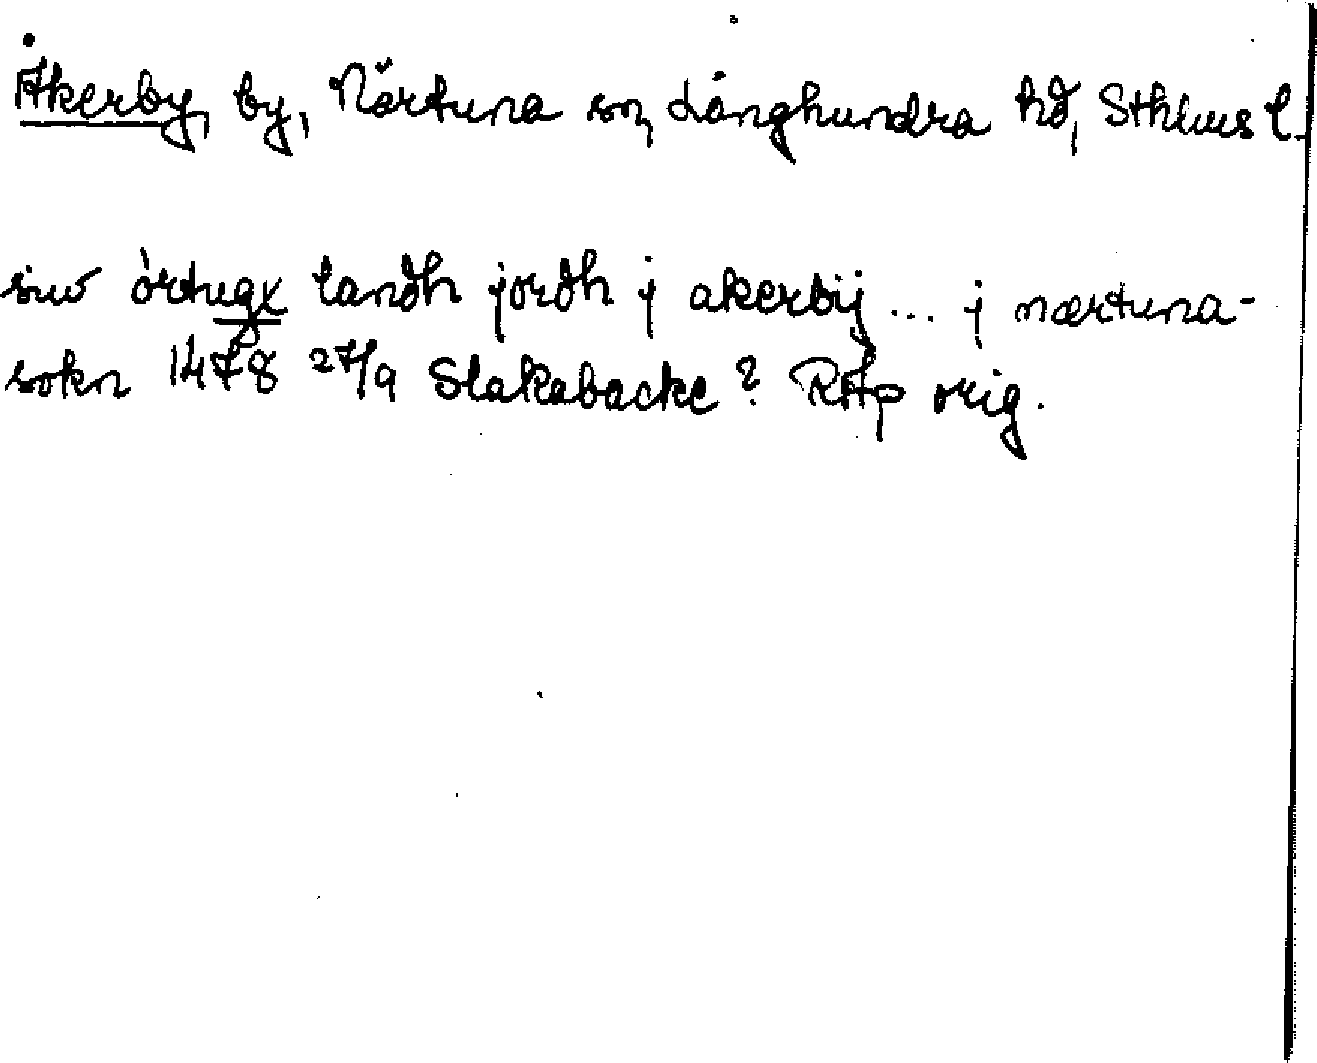 Åkerby, by, Närtuna sn, Långhundra hd, Sthlms l.
siw örtugx landh jordh j akerbij ... j nærtuna-
sokn 1478 27/9 Slakabacke? RAp orig.